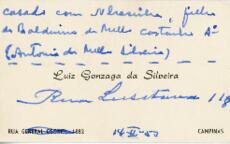 casado com Nhasinha, filha
de Balduino de Mello Castanho Aº
(Antonio de Mello Silveira)
Luiz Gonzaga da Silveira
Rua Lusitana 118
RUA GENERAL OSORIO 1882
CAMPINAS